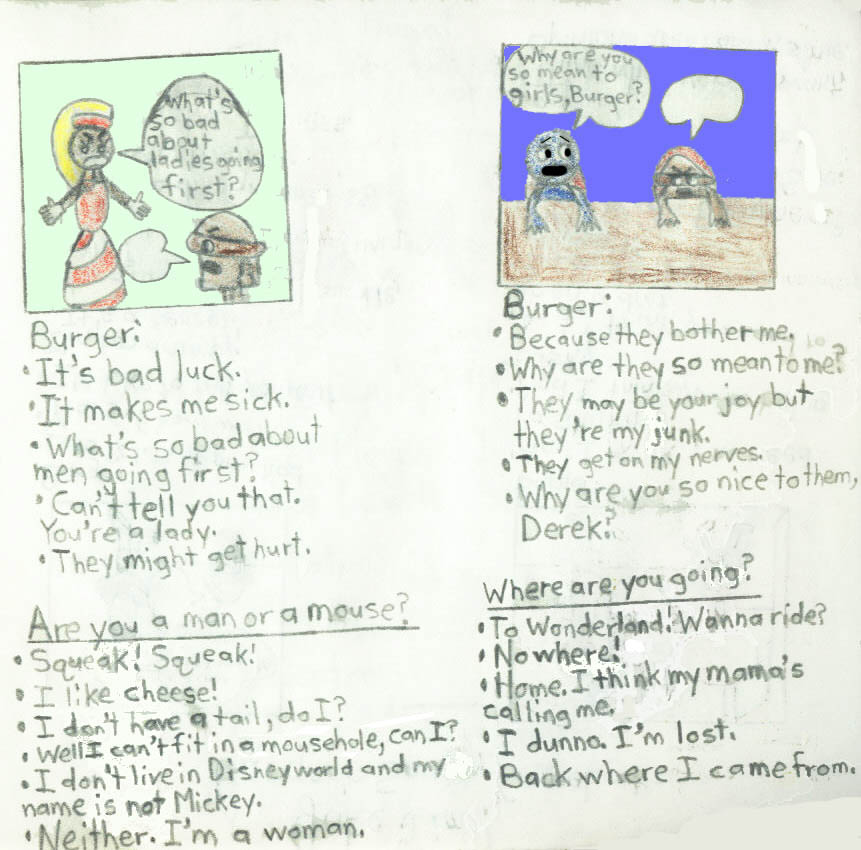 What's
so bad
about
ladies going
first?
Burger:
• It's bad luck.
• It makes me sick.
• What's so bad about
men going first?
• Can't tell you that.
You're a lady.
• They might get hurt.
Are you a man or a mouse?
• Squeak! Squeak!
• I like cheese!
• I don't have a tail, do I?
• Well I can't fit in a mousehole, can I?
• I don't live in Disneyworld and my
name is not Mickey.
• Neither. I'm a woman.
Why are you
so mean to
girls, Burger?
Burger:
• Because they bother me.
• Why are they so mean to me?
• They may be your joy but
they're my junk.
• They get on my nerves.
• Why are you so nice to them,
Derek?
Where are you going?
• To Wonderland! Wanna ride?
• Nowhere!
• Home. I think my mama's
calling me.
• I dunno. I'm lost.
• Back where I came from.